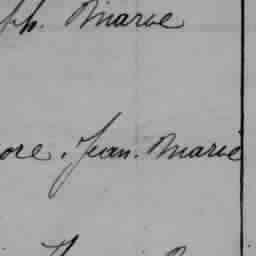 ph. Marie
ore, Jean. Marie